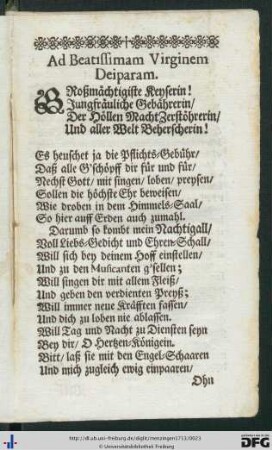 Ad Beatissimam Virginem
Deiparam.
GRoßmächtigiste Keyserin!
Jungfräuliche Gebährerin/
Der Höllen Macht Zerstöhrerin/
Und aller Welt Beherscherin!
Es heuschet ja die Pflichts-Gebühr/
Daß alle G'schöpff dir für und für/
Nechst Gott/ mit singen/ loben/ preysen/
Sollen die höchste Ehr beweisen/
Wie droben in dem Himmels-Saal/
So hier auff Erden auch zumahl.
Darumb so kombt mein Nachtigall/
Voll Liebs-Gedicht und Ehren-Schall/
Will sich bey deinem Hoff einstellen/
Und zu den Musicanten g'sellen;
Will singen dir mit allem Fleiß/
Und geben den verdienten Preyß;
Will immer neue Kräfften fassen/
Und dich zu loben nie ablassen.
Will Tag und Nacht zu Diensten seyn
Bey dir/ O Hertzen-Königein.
Bitt/ laß sie mit den Engel-Schaaren
Und mich zugleich ewig einpaaren/
Ohn
http://dl.ub.uni-freiburg.de/diglit/menzinger1711/0023
© Universitätsbibliothek Freiburg